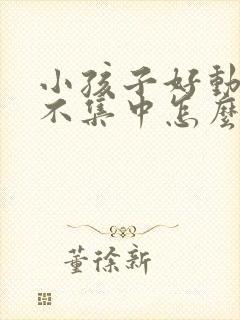 小孩子好動
不集中怎麼
董徐新